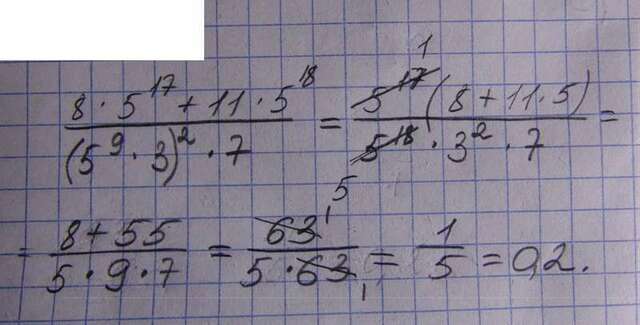 (8 · 5^17 + 11 · 5^18) / ((5^9 · 3)^2 · 7) = (5^17 (8 + 11 · 5)) / (5^18 · 3^2 · 7) = 1 5
= (8 + 55) / (5 · 9 · 7) = 63 1 / (5 · 63 1) = 1/5 = 0,2.